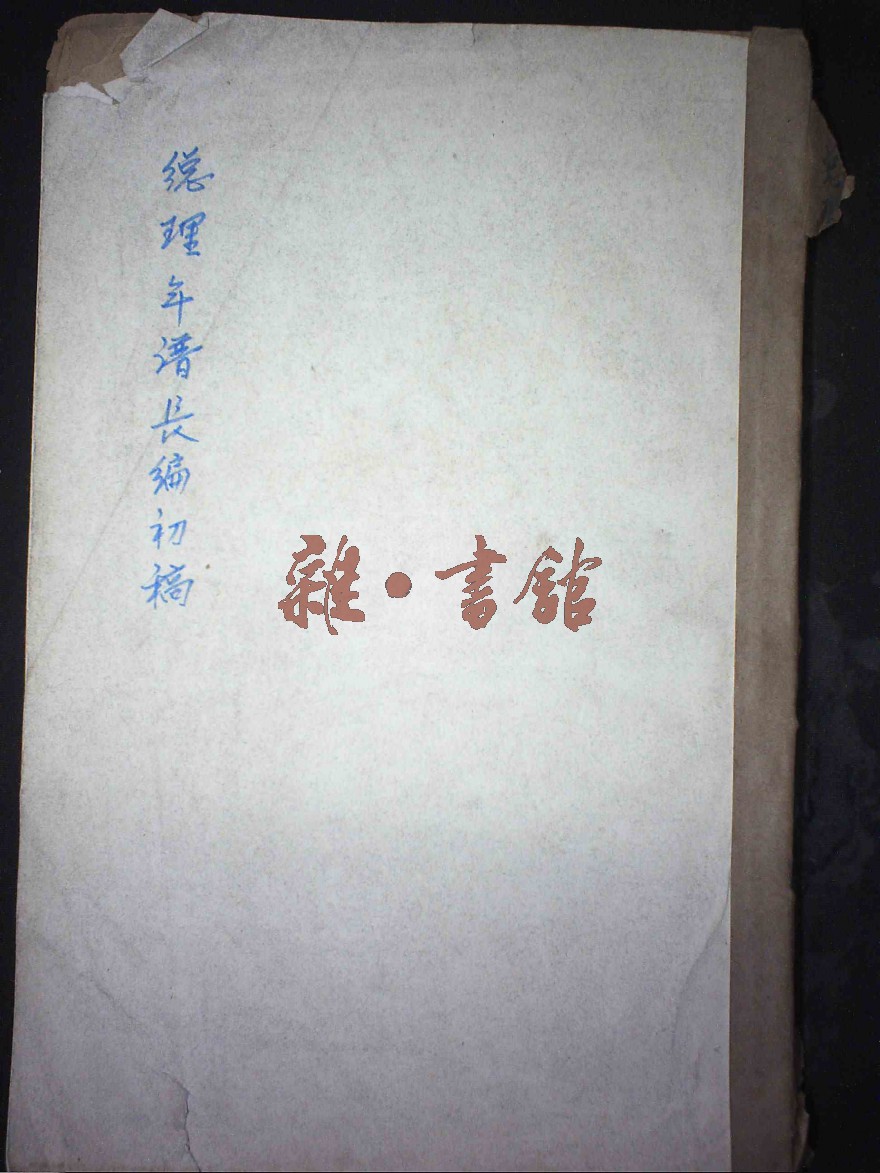 總理年谱長編初稿
雜·書館